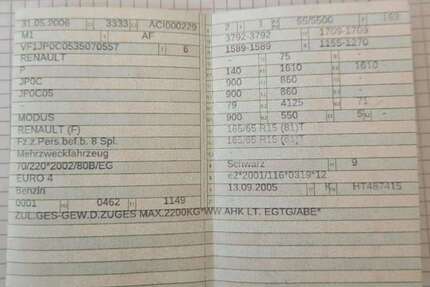 31.05.2006 3333 ACI000229
M1 AF
VF1JP0C0535070557 6
RENAULT
P
JP0C
JP0C05
-
MODUS
RENAULT (F)
Fz.z.Pers.bef.b. 8 Spl.
Mehrzweckfahrzeug
70/220*2002/80B/EG
EURO 4
Benzin
0001 0462 1149
ZUL.GES-GEW.D.ZUGES MAX.2200KG*WW AHK LT. EGTG/ABE*
2 55/5500 163
3792-3792 1709-1709
1589-1589 1155-1270
- 75
140 1610 1610
900 860 -
900 860 -
79 4125 71
900 550 5 -
165/65 R15 (81)T
165/65 R15 (81)T
-
Schwarz 9
e2*2001/116*0319*12
13.09.2005 K HT487415